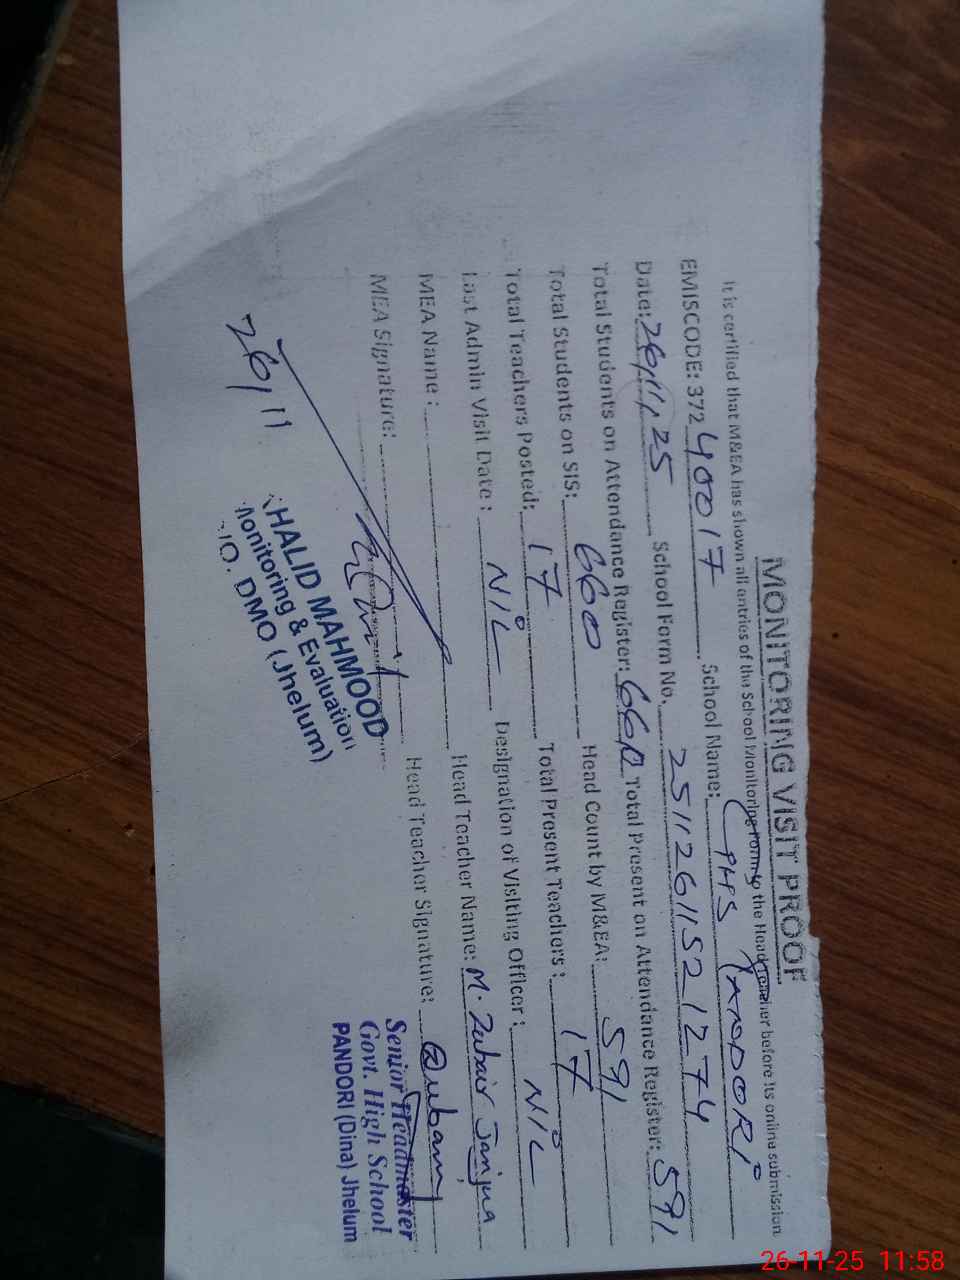 MONITORING VISIT PROOF
It is certified that M&EA has shown all entries of the School Monitoring Form to the Head Teacher before its online submission.
EMISCODE: 37240017 School Name: GHS PANDORI
Date: 26/11/25 School Form No. 25112611521274
Total Students on Attendance Register: 660 Total Present on Attendance Register: 591
Total Students on SIS: 660 Head Count by M&EA: 591
Total Teachers Posted: 17 Total Present Teachers: 17
Last Admin Visit Date: NiL Designation of Visiting Officer: NiL
MEA Name: Head Teacher Name: M. Zubair Janjua
MEA Signature: Head Teacher Signature:
26/11
HALID MAHMOOD
Monitoring & Evaluation
O. DMO (Jhelum)
Senior Headmaster
Govt. High School
PANDORI (Dina) Jhelum
26-11-25 11:58